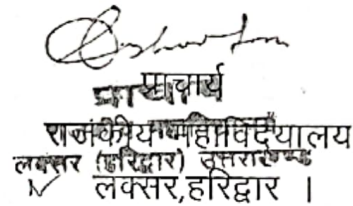 प्राचार्य
राजकीय महाविद्यालय
लक्सर (हरिद्वार) उत्तराखण्ड
लक्सर, हरिद्वार ।